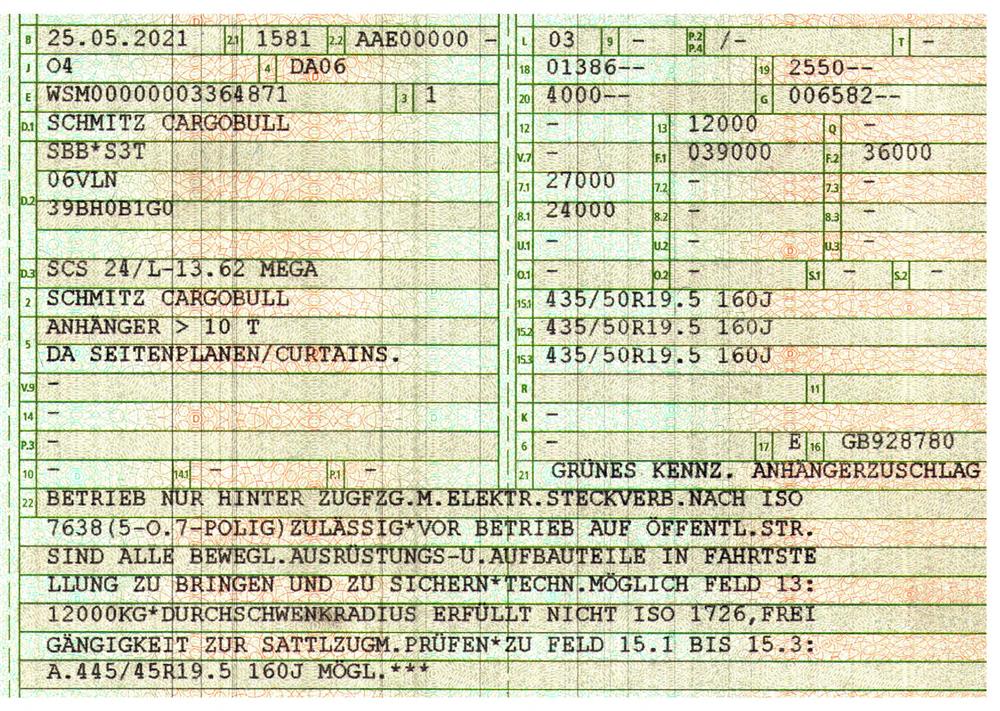 B 25.05.2021 2.1 1581 2.2 AAE00000 -
J O4 4 DA06
E WSM00000003364871 3 1
D.1 SCHMITZ CARGOBULL
D.2 SBB*S3T
06VLN
39BH0B1G0
D.3 SCS 24/L-13.62 MEGA
2 SCHMITZ CARGOBULL
5 ANHÄNGER > 10 T
DA SEITENPLANEN/CURTAINS.
V.9 -
14 -
P.3 -
10 - 14.1 - P.1 -
L 03 9 - P.2 P.4 /- T -
18 01386-- 19 2550--
20 4000-- G 006582--
12 - 13 12000 Q -
V.7 - F.1 039000 F.2 36000
7.1 27000 7.2 - 7.3 -
8.1 24000 8.2 - 8.3 -
U.1 - U.2 - U.3 -
O.1 - O.2 - S.1 - S.2 -
15.1 435/50R19.5 160J
15.2 435/50R19.5 160J
15.3 435/50R19.5 160J
R 11
K -
6 - 17 E 16 GB928780
21 GRÜNES KENNZ. ANHÄNGERZUSCHLAG
22 BETRIEB NUR HINTER ZUGFZG.M.ELEKTR.STECKVERB.NACH ISO
7638(5-O.7-POLIG)ZULÄSSIG*VOR BETRIEB AUF ÖFFENTL.STR.
SIND ALLE BEWEGL.AUSRÜSTUNGS-U.AUFBAUTEILE IN FAHRTSTE
LLUNG ZU BRINGEN UND ZU SICHERN*TECHN.MÖGLICH FELD 13:
12000KG*DURCHSCHWENKRADIUS ERFÜLLT NICHT ISO 1726,FREI
GÄNGIGKEIT ZUR SATTLZUGM.PRÜFEN*ZU FELD 15.1 BIS 15.3:
A.445/45R19.5 160J MÖGL.***